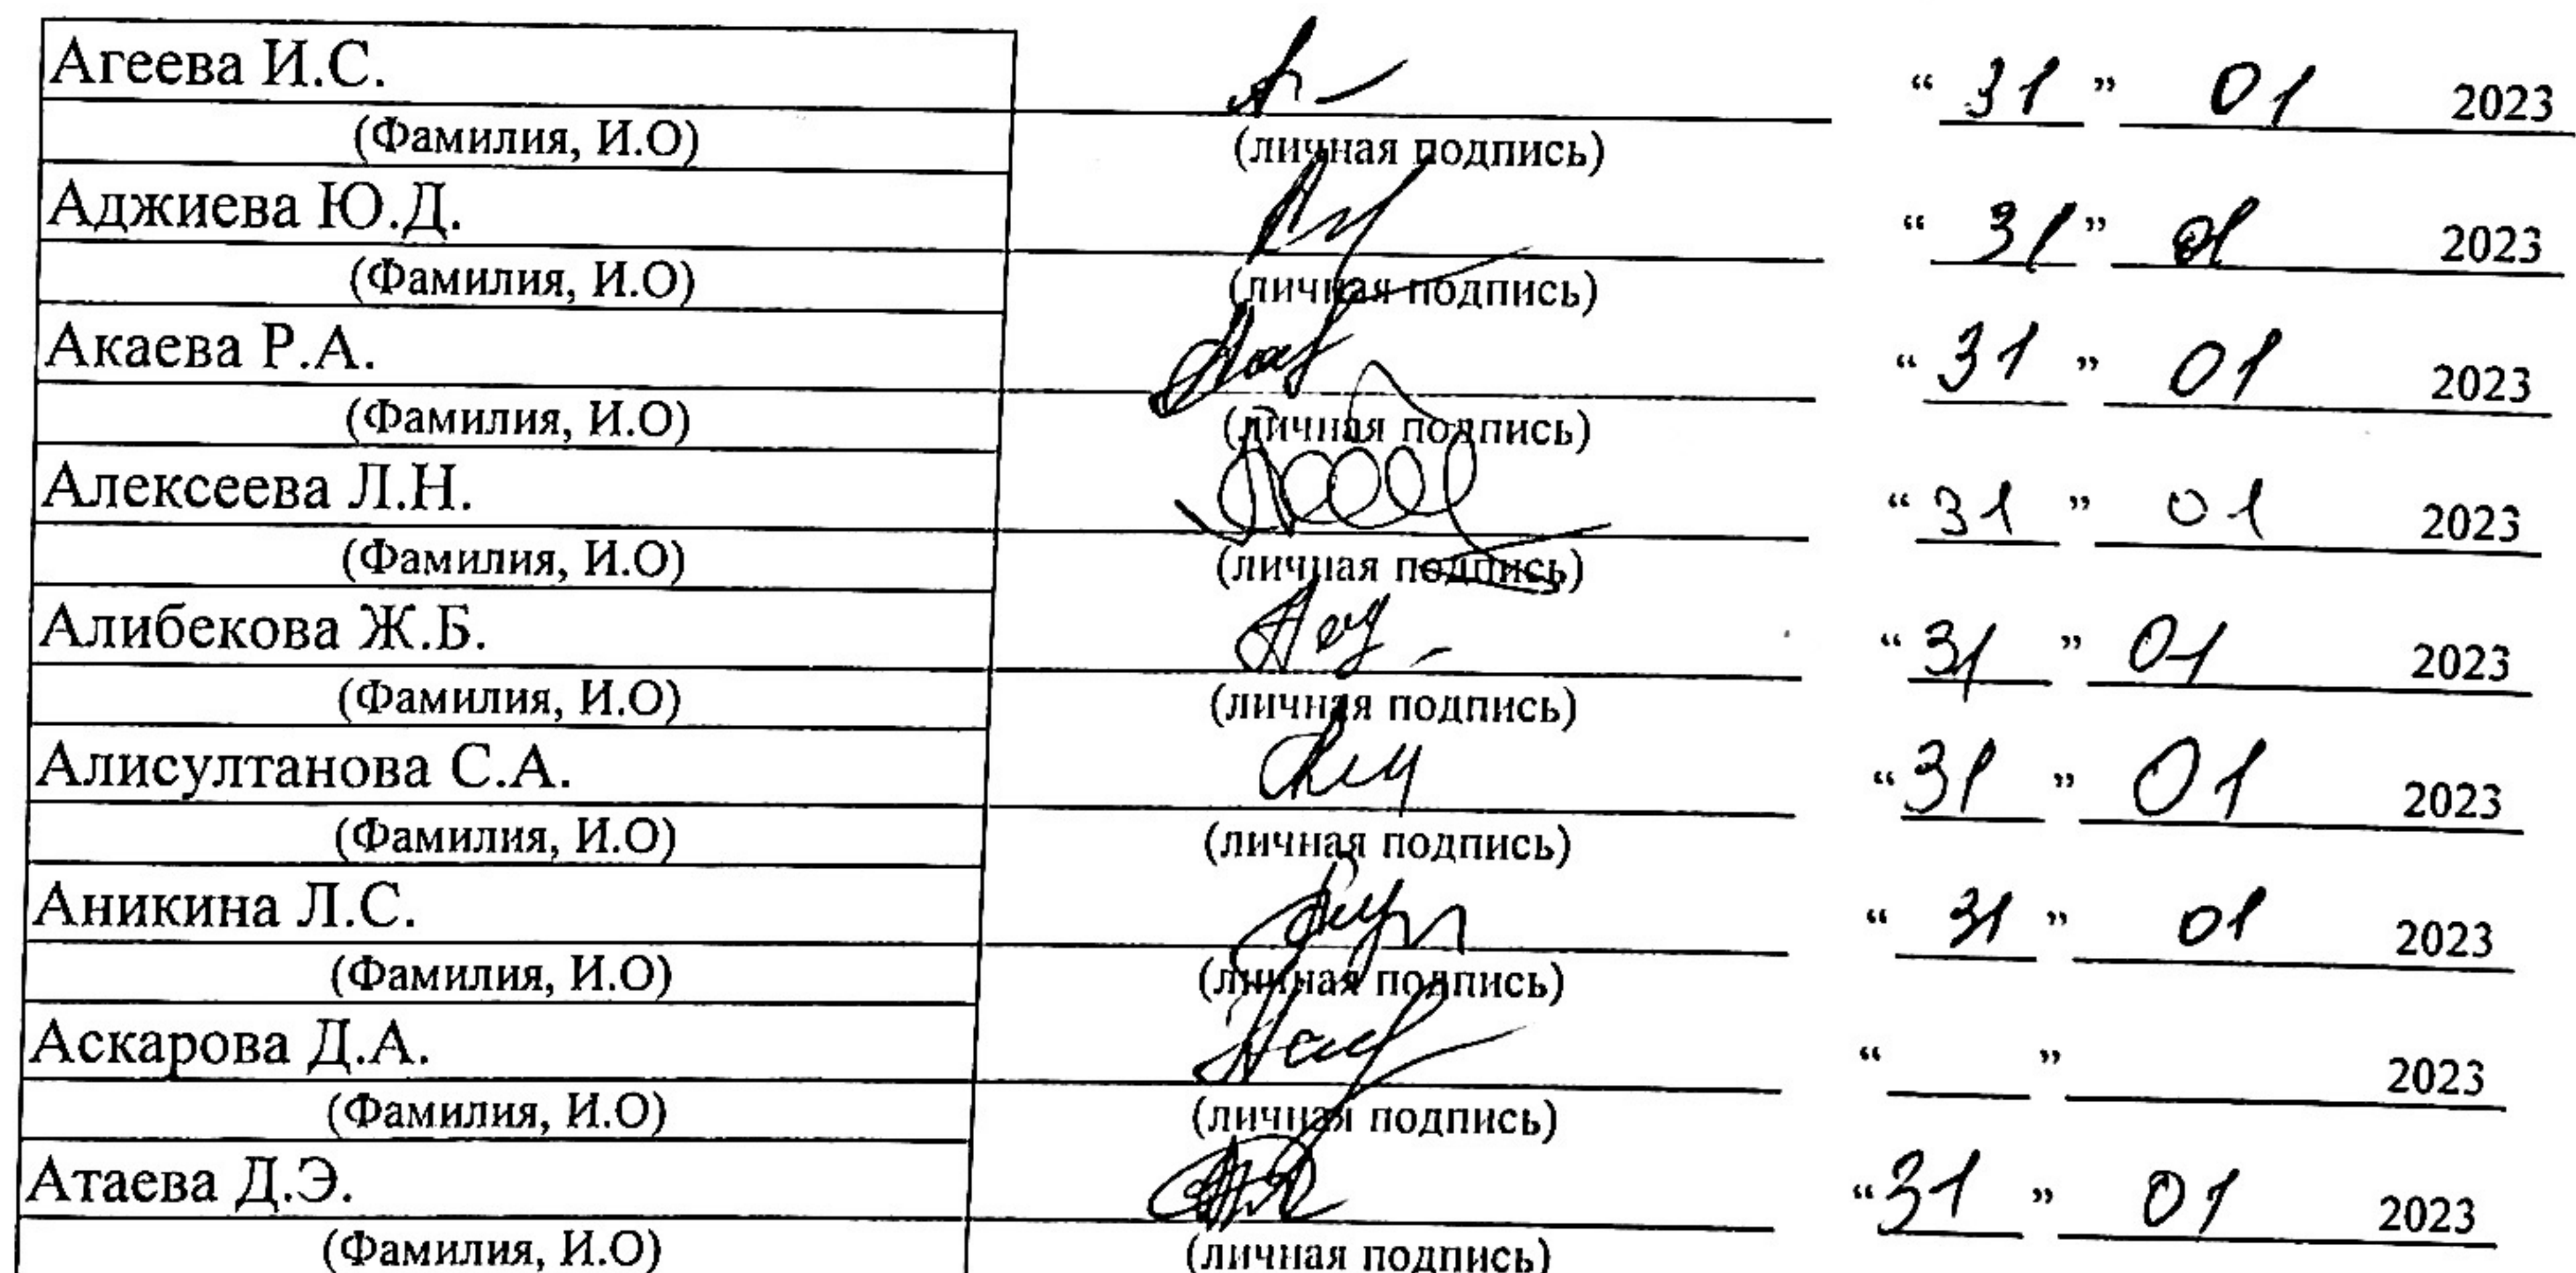 Агеева И.С. “ 31 ” 01 2023
(Фамилия, И.О) (личная подпись)
Аджиева Ю.Д. “ 31 ” 01 2023
(Фамилия, И.О) (личная подпись)
Акаева Р.А. “ 31 ” 01 2023
(Фамилия, И.О) (личная подпись)
Алексеева Л.Н. “ 31 ” 01 2023
(Фамилия, И.О) (личная подпись)
Алибекова Ж.Б. “ 31 ” 01 2023
(Фамилия, И.О) (личная подпись)
Алисултанова С.А. “ 31 ” 01 2023
(Фамилия, И.О) (личная подпись)
Аникина Л.С. “ 31 ” 01 2023
(Фамилия, И.О) (личная подпись)
Аскарова Д.А. “ ” 2023
(Фамилия, И.О) (личная подпись)
Атаева Д.Э. “ 31 ” 01 2023
(Фамилия, И.О) (личная подпись)